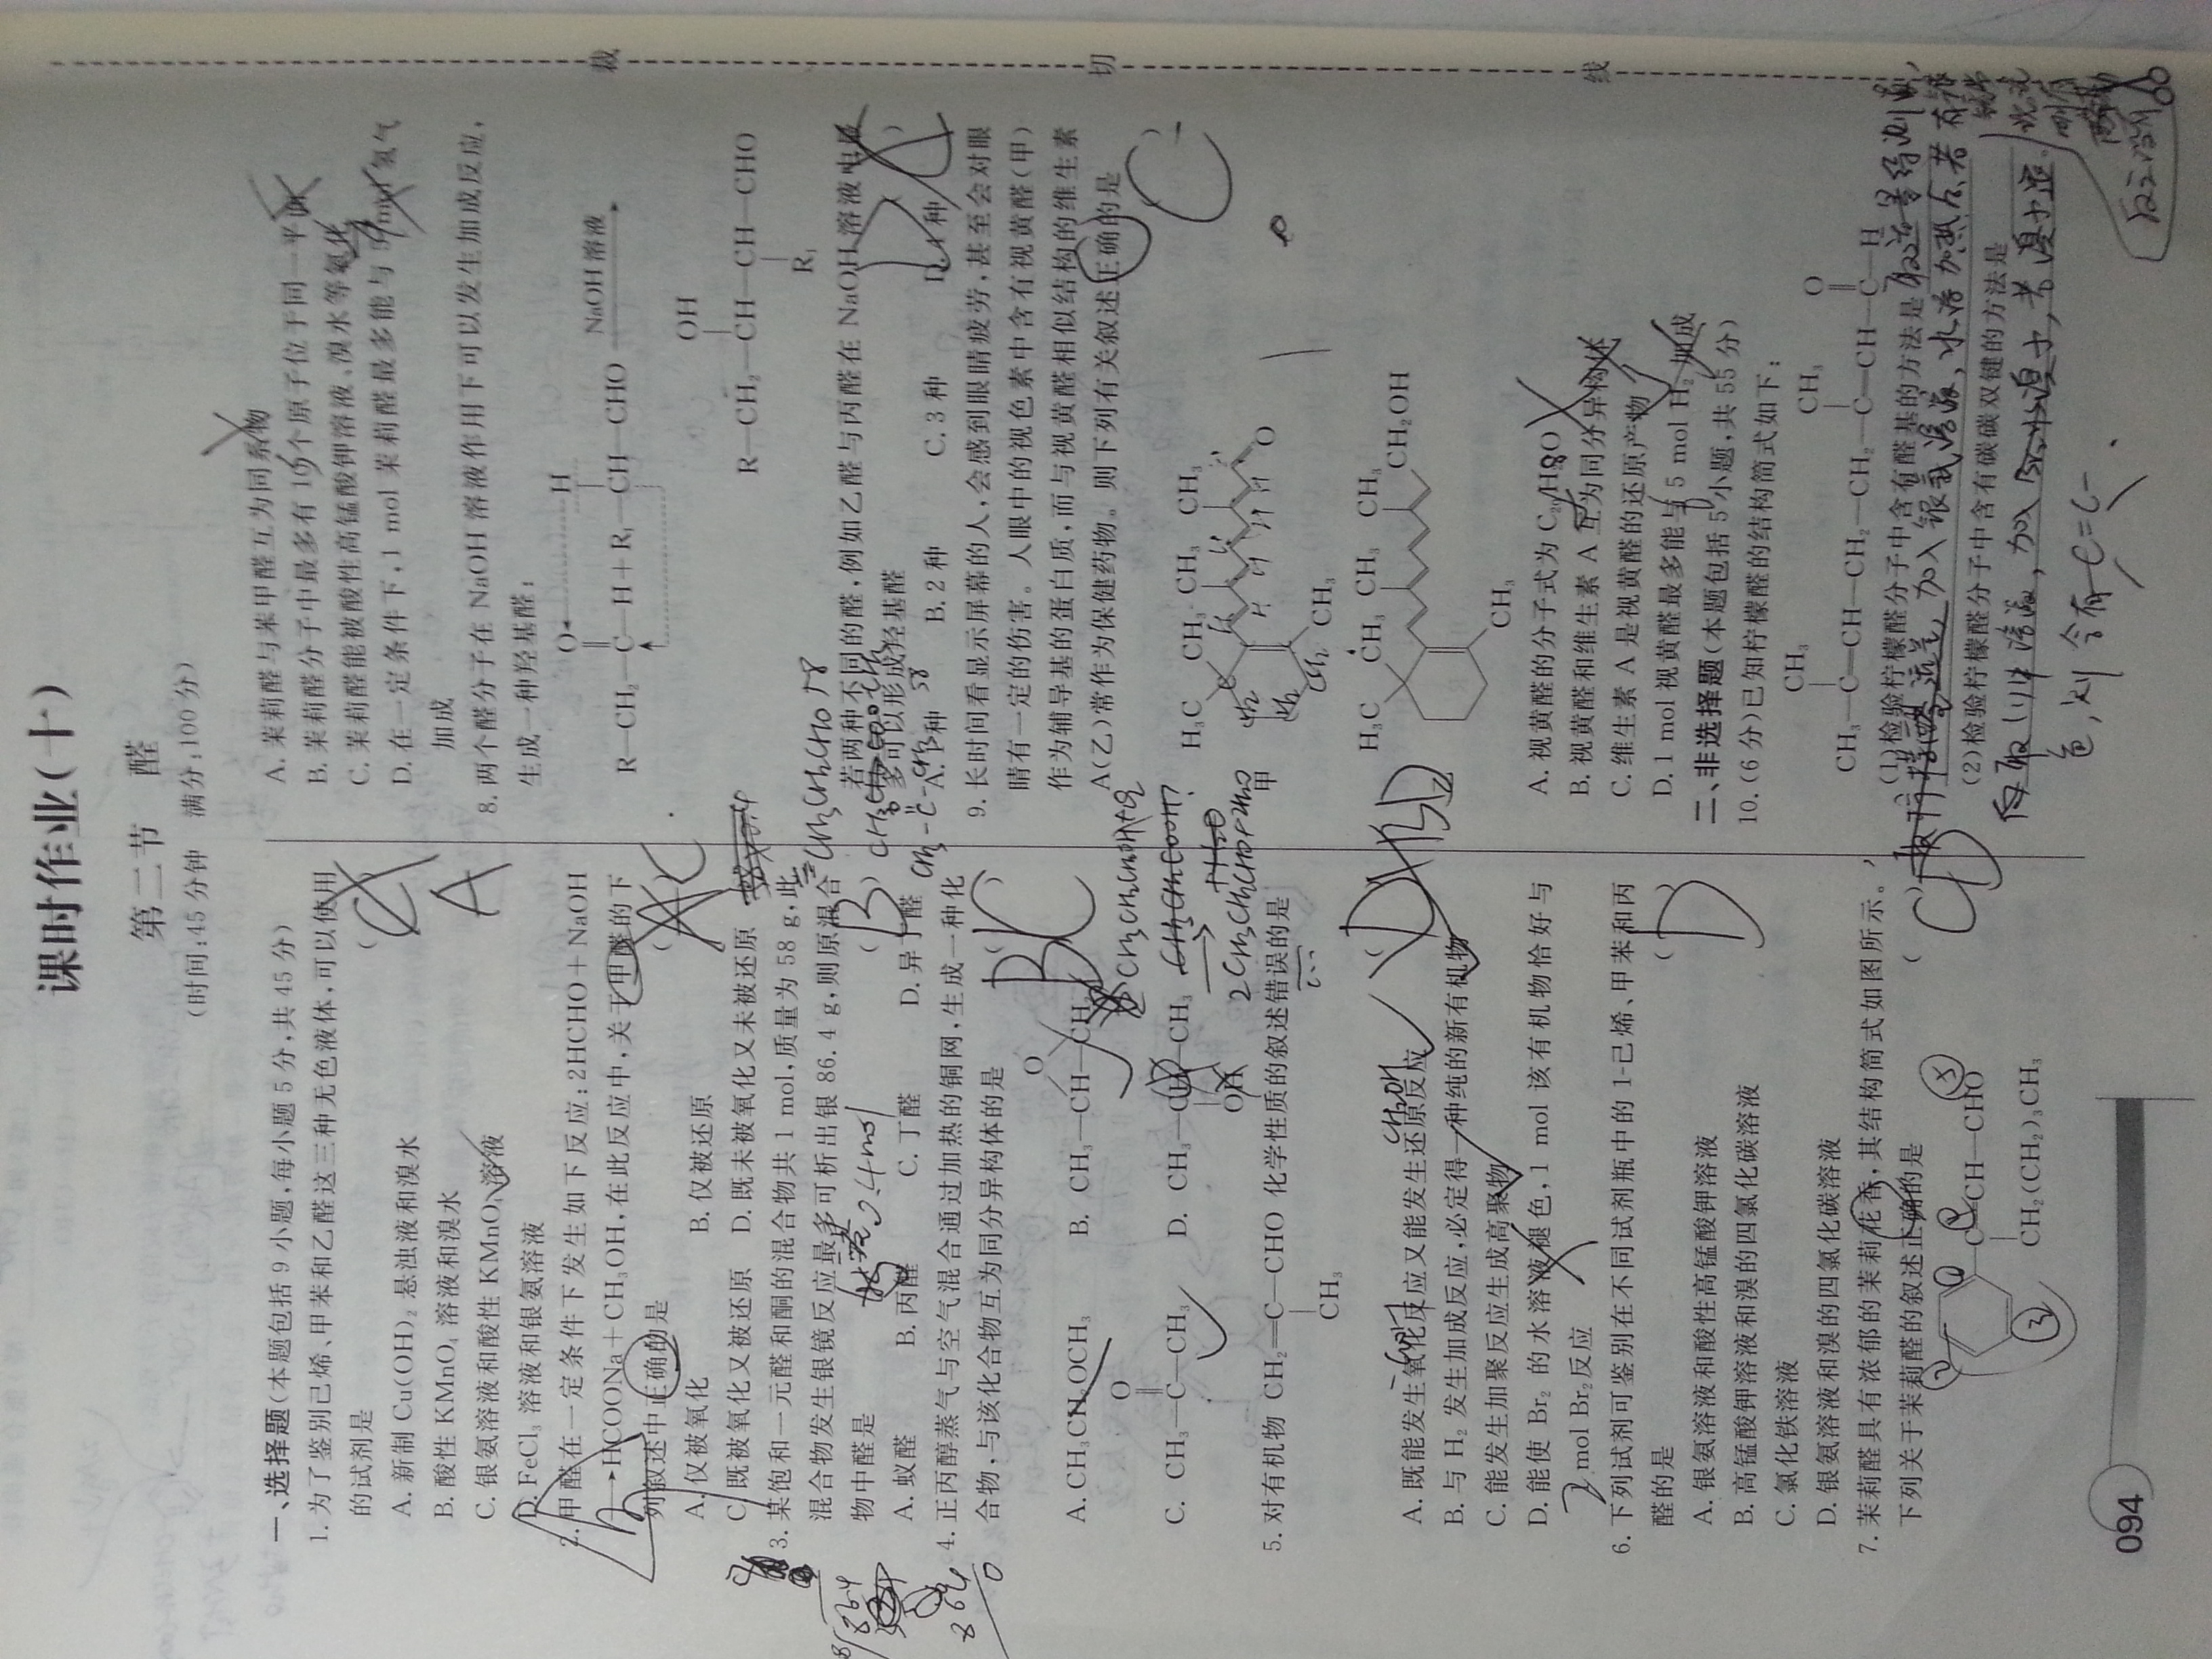 课时作业(十)
第二节 醛
(时间:45分钟 满分:100分)
一、选择题(本题包括9小题,每小题5分,共45分)
1. 为了鉴别己烯、甲苯和乙醛这三种无色液体,可以使用
的试剂是 ( )
A
A. 新制Cu(OH)₂悬浊液和溴水
B. 酸性KMnO₄溶液和溴水
C. 银氨溶液和酸性KMnO₄溶液
D. FeCl₃溶液和银氨溶液
2. 甲醛在一定条件下发生如下反应:2HCHO+NaOH
→HCOONa+CH₃OH,在此反应中,关于甲醛的下
列叙述中正确的是 ( ) C
A. 仅被氧化 B. 仅被还原
C. 既被氧化又被还原 D. 既未被氧化又未被还原
3. 某饱和一元醛和酮的混合物共1 mol,质量为58 g,此
混合物发生银镜反应最多可析出银86.4 g,则原混合
物中醛是 0.4mol ( B )
CH₃CH₂CHO 58
A. 蚁醛 B. 丙醛 C. 丁醛 D. 异丁醛
4. 正丙醇蒸气与空气混合通过加热的铜网,生成一种化
合物,与该化合物互为同分异构体的是 ( ) BC
A. CH₃CH₂OCH₃ B. CH₃—CH—CH₂
O
O
C. CH₃—C—CH₃ D. CH₃—CH—CH₃
OH
2CH₃CH₂CHO+2H₂O
5. 对有机物 CH₂=C—CHO 化学性质的叙述错误的是
CH₃
BD
A. 既能发生氧化反应又能发生还原反应
B. 与H₂发生加成反应,必定得一种纯的新有机物
C. 能发生加聚反应生成高聚物
D. 能使Br₂的水溶液褪色,1 mol该有机物恰好与
mol Br₂反应
6. 下列试剂可鉴别在不同试剂瓶中的1-己烯、甲苯和丙
醛的是 ( D )
A. 银氨溶液和酸性高锰酸钾溶液
B. 高锰酸钾溶液和溴的四氯化碳溶液
C. 氯化铁溶液
D. 银氨溶液和溴的四氯化碳溶液
7. 茉莉醛具有浓郁的茉莉花香,其结构简式如图所示。
下列关于茉莉醛的叙述正确的是 ( )
C=CH—CHO
CH₂(CH₂)₃CH₃
094
A. 茉莉醛与苯甲醛互为同系物
B. 茉莉醛分子中最多有10个原子位于同一平面
C. 茉莉醛能被酸性高锰酸钾溶液、溴水等氧化
D. 在一定条件下,1 mol茉莉醛最多能与5 mol氢气
加成
8. 两个醛分子在NaOH溶液作用下可以发生加成反应,
生成一种羟基醛:
O H
R—CH₂—C—H+R₁—CH—CHO NaOH溶液
OH
R—CH₂—CH—CH—CHO
R₁
若两种不同的醛,例如乙醛与丙醛在NaOH溶液中最
多可以形成羟基醛 ( )
A. 1种 B. 2种 C. 3种 D. 4种
9. 长时间看显示屏幕的人,会感到眼睛疲劳,甚至会对眼
睛有一定的伤害。人眼中的视色素中含有视黄醛(甲)
作为辅导基的蛋白质,而与视黄醛相似结构的维生素
A(乙)常作为保健药物。则下列有关叙述正确的是
C
H₃C CH₃ CH₃ CH₃
甲 O
CH₃
H₃C CH₃ CH₃ CH₃
CH₂OH
CH₃
A. 视黄醛的分子式为C₂₀H₂₈O
B. 视黄醛和维生素A互为同分异构体
C. 维生素A是视黄醛的还原产物
D. 1 mol视黄醛最多能与5 mol H₂加成
二、非选择题(本题包括5小题,共55分)
10. (6分)已知柠檬醛的结构简式如下:
CH₃ CH₃ O
CH₃—C=CH—CH₂—CH₂—C=CH—C—H
(1)检验柠檬醛分子中含有醛基的方法是 取适量待测液,
加入银氨溶液,水浴加热后,若有银
(2)检验柠檬醛分子中含有碳碳双键的方法是
取(1)中溶液,加入溴水,若溴水退
色,则含有C=C
反之没有
裁
切
线